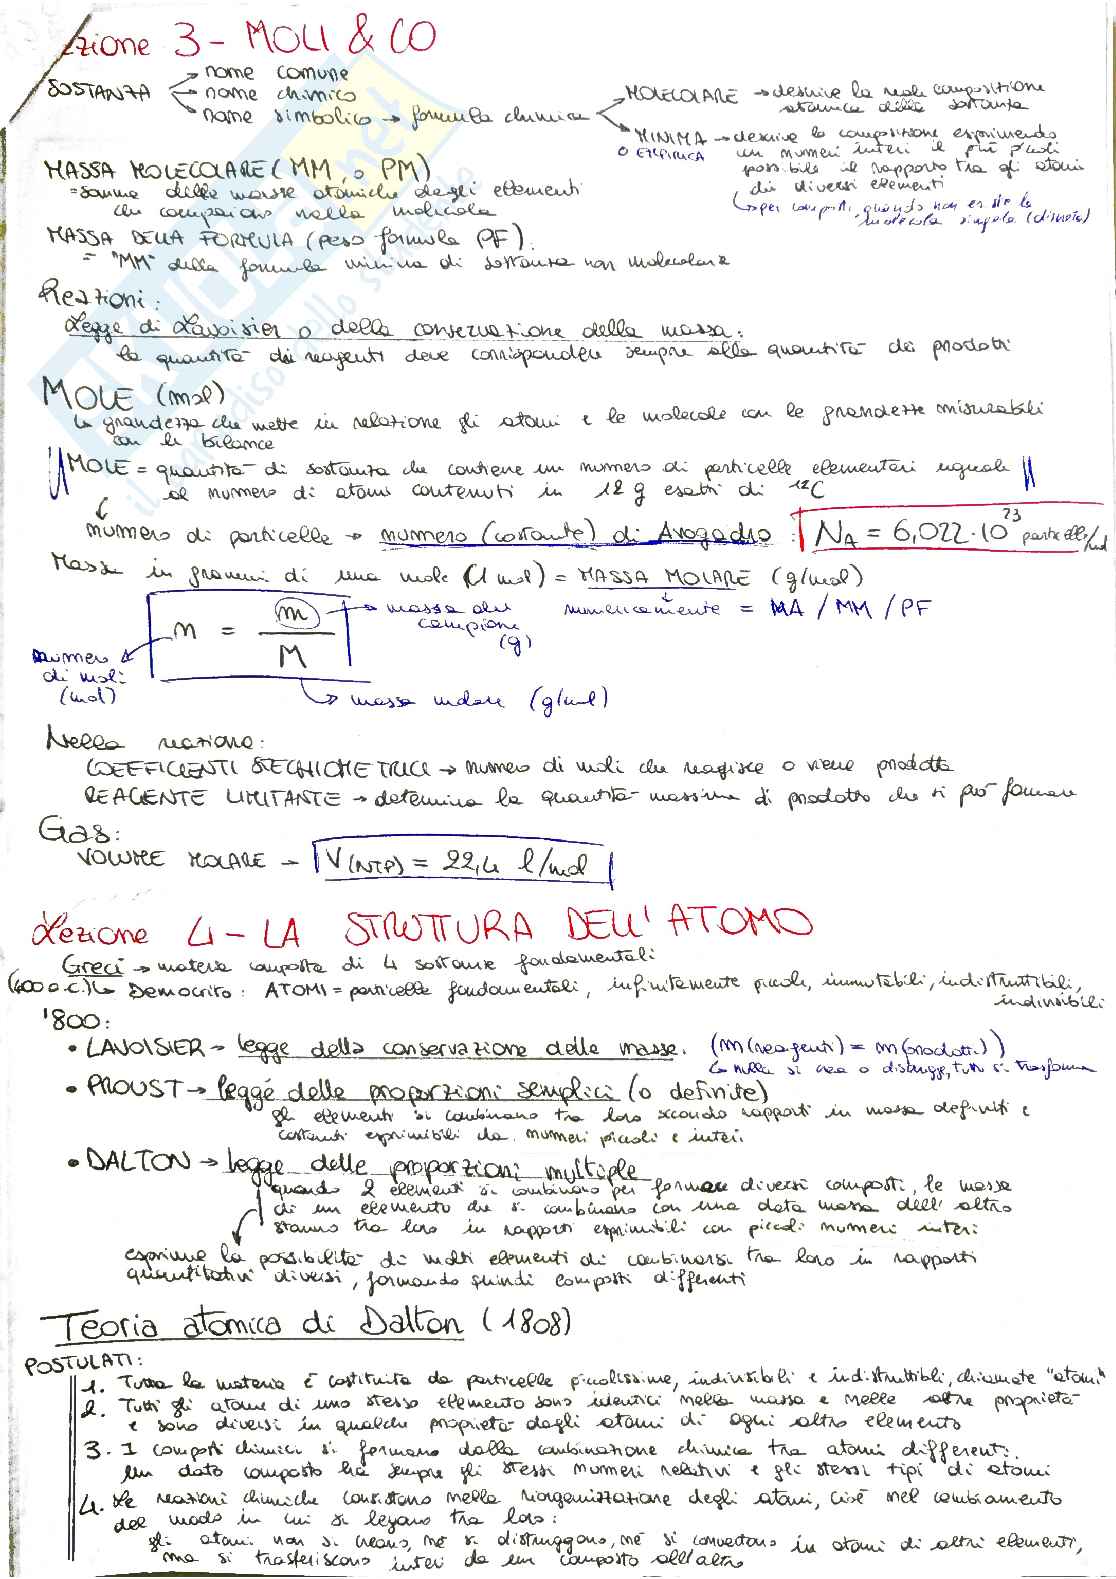 Lezione 3 - MOLI & CO
SOSTANZA
→ nome comune
→ nome chimico
→ nome simbolico → formula chimica
→ MOLECOLARE → descrive la reale composizione
atomica della sostanza
→ MINIMA → descrive la composizione esprimendo
o EMPIRICA
in numeri interi il più piccoli
possibile il rapporto tra gli atomi
di diversi elementi
↳ per composti quando non esiste la
molecola singola (discreta)
MASSA MOLECOLARE (MM o PM)
= somma delle masse atomiche degli elementi
che compaiono nella molecola
MASSA DELLA FORMULA (peso formula PF):
= "MM" della formula minima di sostanza non molecolare
Reazioni:
Legge di Lavoisier o della conservazione della massa:
la quantità dei reagenti deve corrispondere sempre alla quantità dei prodotti
MOLE (mol)
↳ grandezza che mette in relazione gli atomi e le molecole con le grandezze misurabili
con le bilance
MOLE = quantità di sostanza che contiene un numero di particelle elementari uguale
al numero di atomi contenuti in 12 g esatti di ¹²C
↓
numero di particelle → numero (costante) di Avogadro : N_A = 6,022·10²³ particelle/mol
Massa in grammi di una mole (1 mol) = MASSA MOLARE (g/mol)
numericamente = MA / MM / PF
n = m / M
→ massa del
campione
(g)
numero
di moli
(mol)
→ massa molare (g/mol)
Nella reazione:
COEFFICIENTI STECHIOMETRICI → numero di moli che reagisce o viene prodotta
REAGENTE LIMITANTE → determina la quantità massima di prodotto che si può formare
Gas:
VOLUME MOLARE → V(NTP) = 22,4 l/mol
Lezione 4 - LA STRUTTURA DELL'ATOMO
Greci → materia composta di 4 sostanze fondamentali
(400 a.C.) ↳ Democrito: ATOMI = particelle fondamentali, infinitamente piccole, immutabili, indistruttibili,
indivisibili
'800:
• LAVOISIER → legge della conservazione delle masse. (m(reagenti) = m(prodotti))
↳ nulla si crea o distrugge, tutto si trasforma
• PROUST → legge delle proporzioni semplici (o definite)
gli elementi si combinano tra loro secondo rapporti in massa definiti e
costanti esprimibili da numeri piccoli e interi
• DALTON → legge delle proporzioni multiple
quando 2 elementi si combinano per formare diversi composti, le masse
di un elemento che si combinano con una data massa dell'altro
stanno tra loro in rapporti esprimibili con piccoli numeri interi
esprime la possibilità di molti elementi di combinarsi tra loro in rapporti
quantitativi diversi, formando quindi composti differenti
Teoria atomica di Dalton (1808)
POSTULATI:
1. Tutta la materia è costituita da particelle piccolissime, indivisibili e indistruttibili, chiamate "atomi"
2. Tutti gli atomi di uno stesso elemento sono identici nella massa e nelle altre proprietà
e sono diversi in qualche proprietà dagli atomi di ogni altro elemento
3. I composti chimici si formano dalla combinazione chimica tra atomi differenti:
un dato composto ha sempre gli stessi numeri relativi e gli stessi tipi di atomi
4. Le reazioni chimiche consistono nella riorganizzazione degli atomi, cioè nel cambiamento
del modo in cui si legano tra loro:
gli atomi non si creano, né si distruggono, né si convertono in atomi di altri elementi,
ma si trasferiscono interi da un composto all'altro